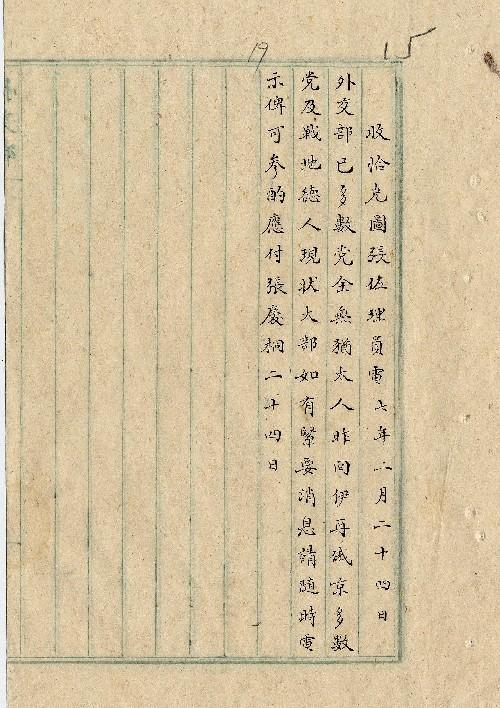 15
19
收恰克圖張佐理員電七年二月二十四日
外交部已多數党全無猶太人昨向伊再感京多數
党及戰地德人現狀大部如有緊要消息請随時電
示俾可参酌應付張慶桐二十四日